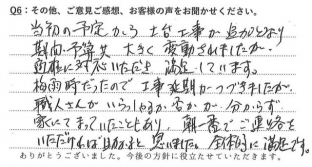 Q6：その他、ご意見ご感想、お客様の声をお聞かせください。
当初の予定から土台工事が追加となり
期間・予算共 大きく変動されましたが、
適確に対応いただき 満足しています。
梅雨時だったので工事延期がつづきましたが、
職人さんがいらっしゃるか否かが、分からず
家にてまっていたこともあり、朝一番でご連絡を
いただければ助かると思いました。全体的に満足です。
ありがとうございました。今後の方針に役立たせていただきます。